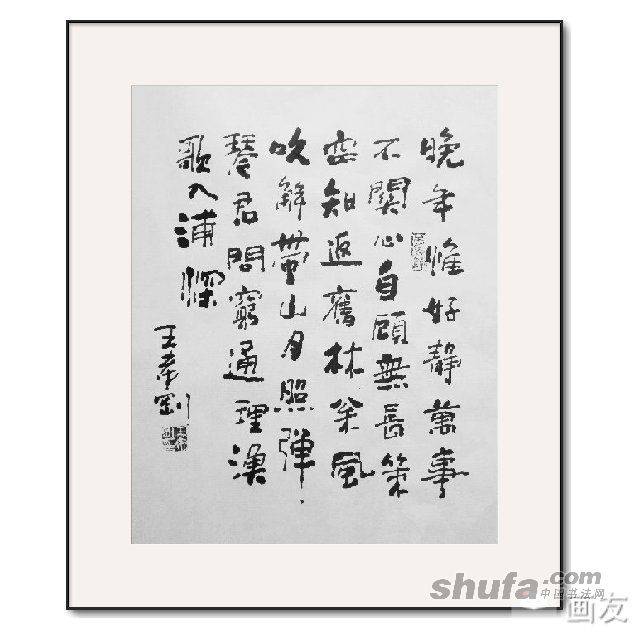 晚年惟好靜萬事
不關心自顧無長策
空知返舊林松風
吹解帶山月照彈
琴君問窮通理漁
歌入浦深
王
shufa.com
中国书法网
画友